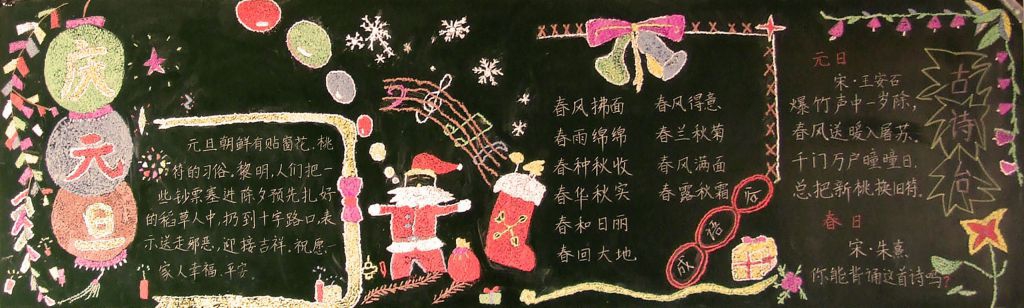 庆元旦
元旦朝鲜有贴窗花、桃
符的习俗。黎明,人们把一
些钞票塞进除夕预先扎好
的稻草人中,扔到十字路口,表
示送走邪恶,迎接吉祥。祝愿一
家人幸福、平安。
春风拂面 春风得意
春雨绵绵 春兰秋菊
春种秋收 春风满面
春华秋实 春露秋霜
春和日丽
春回大地
成语
古诗台
元日
宋·王安石
爆竹声中一岁除,
春风送暖入屠苏。
千门万户曈曈日,
总把新桃换旧符。
春日
宋·朱熹
你能背诵这首诗吗?